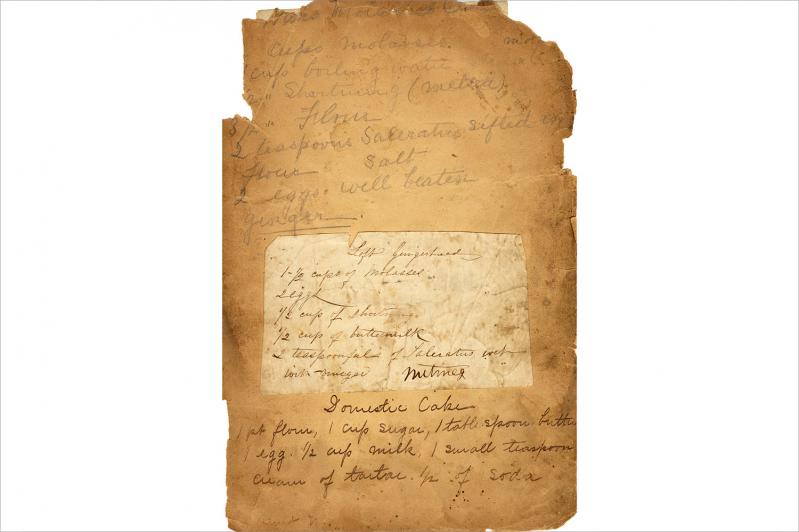 Molasses Cake
Cups Molasses
cup boiling water
" Shortning (melted)
3 1/2 " Flour
2 teaspoons Saleratus sifted in
flour Salt
2 eggs well beaten
Ginger
Soft Gingerbread
1-1/2 cups of Molasses
2 eggs
1/2 cup of shortning
1/2 cup of buttermilk
2 teaspoonfuls of Saleratus wet
with vinegar Nutmeg
Domestic Cake
1 pt flour, 1 cup sugar, 1 table spoon butter
1 egg. 1/2 cup milk, 1 small teaspoon
cream of tartar. 1/2 of soda